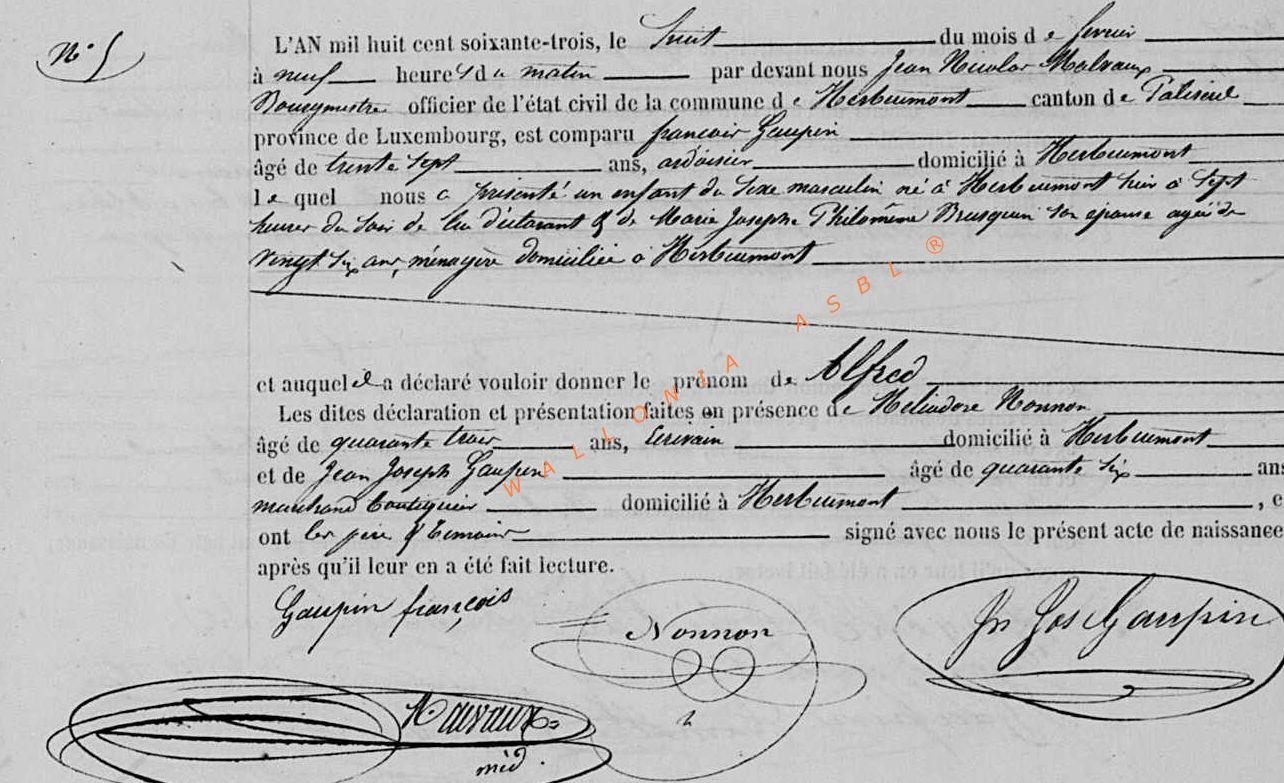 N° 5
L'AN mil huit cent soixante-trois, le huit du mois de fevrier
à neuf heures du matin par devant nous Jean Nicolas Malvaux
Bourgmestre officier de l'état civil de la commune de Herbeumont canton de Paliseul
province de Luxembourg, est comparu françois Gaupin
âgé de trente sept ans, ardoisier domicilié à Herbeumont
lequel nous a présenté un enfant du sexe masculin né à Herbeumont hier à sept
heures du soir de lui déclarant & de Marie Josephe Philomène Brusquin son épouse agée de
vingt six ans, ménagère domiciliée à Herbeumont
et auquel il a déclaré vouloir donner le prénom de Alfred
Les dites déclaration et présentation faites en présence de Héliodore Nonnon
âgé de quarante trois ans, Ecrivain domicilié à Herbeumont
et de Jean Joseph Gaupin âgé de quarante six ans
marchand boutiquier domicilié à Herbeumont, e
ont les père & témoins signé avec nous le présent acte de naissance
après qu'il leur en a été fait lecture.
Gaupin françois
Nonnon
Jn Jos Gaupin
Malvaux
WALLONIA ASBL ®